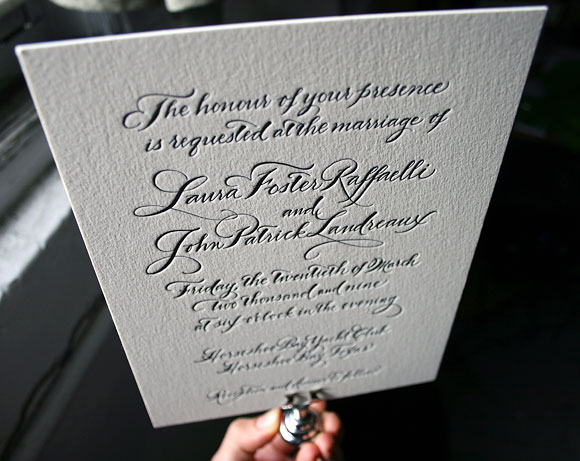 The honour of your presence
is requested at the marriage of
Laura Foster Raffaelli
and
John Patrick Landreaux
Friday, the twentieth of March
two thousand and nine
at six o'clock in the evening
Horseshoe Bay Yacht Club
Horseshoe Bay, Texas
Reception and